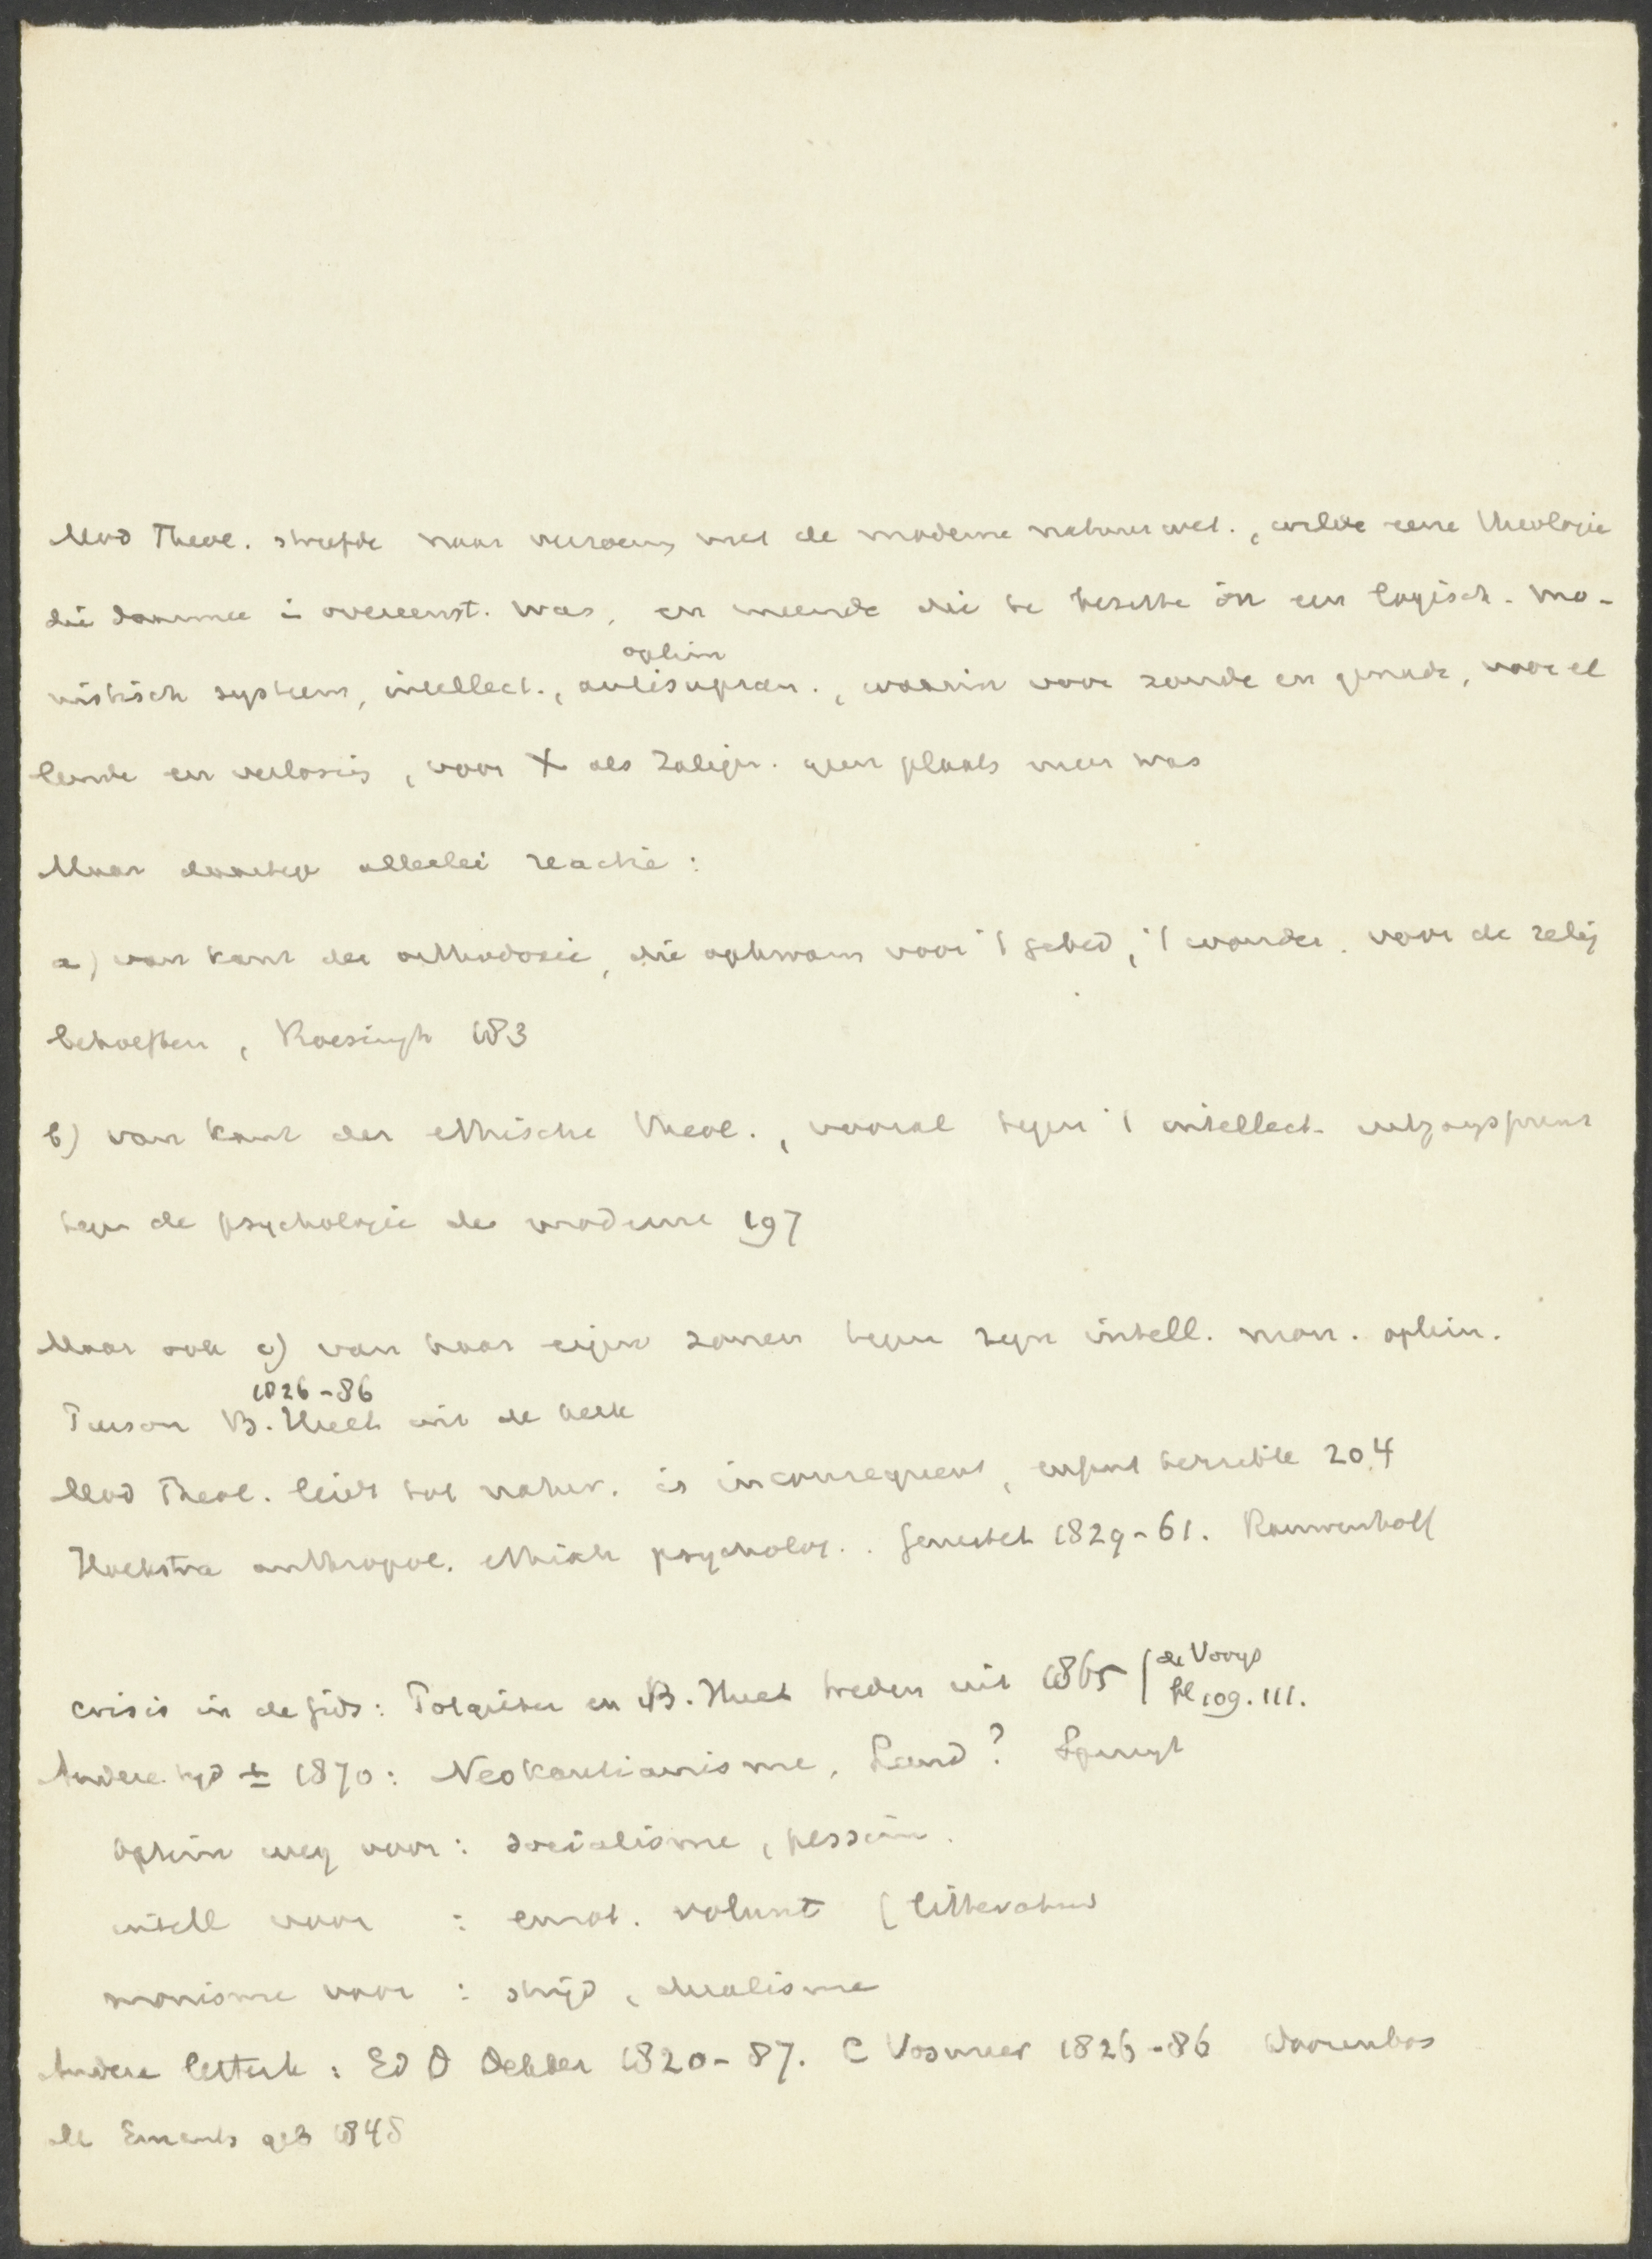 Mod Theol. streefde naar verzoeng met de moderne natuurwet., wilde eene theologie
die daarmee in overeenst. was, en meende die te bezitten in een logisch-mo-
optim
nistisch systeem, intellect., antisupran., waarin voor zonde en genade, voor el
lende en verlossing, voor X als Zaligm. geen plaats meer was
Maar daartegen allerlei reactie:
a) van kant der orthodoxie, die opkwam voor 't gebed, 't wonder. voor de relig
behoeften, Roessingh 183
b) van kant der ethische theol., vooral tegen 't intellect. uitgangspunt
tegen de psychologie der moderne 197
Maar ook c) van haar eigen zonen tegen zijn intell. mon. optim.
1826-86
Pierson B. Huet uit de kerk
Mod Theol. leidt tot natur. is inconsequent, enfant terrible 204
Hoekstra anthropol. ethisch psycholog.. Genestet 1829-61. Rauwenhoff
Crisis in de Gids: Potgieter en B. Huet treden uit 1865 | de Vooys
bl 109. 111.
Andere tijd ± 1870: Neokantianisme, Land? Spruyt
optim weg voor: socialisme, pessim.
intell voor : emot. volunt (litteratuur
monisme voor : strijd, dualisme
Andere letterk: Ed D Dekker 1820-87. C Vosmaer 1826-86 Doorenbos
M Emants geb 1848